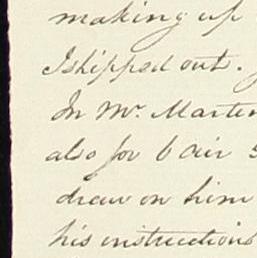 making up
I shipped out.
In Mr. Marten
also for 6 air
draw on him
his instructions